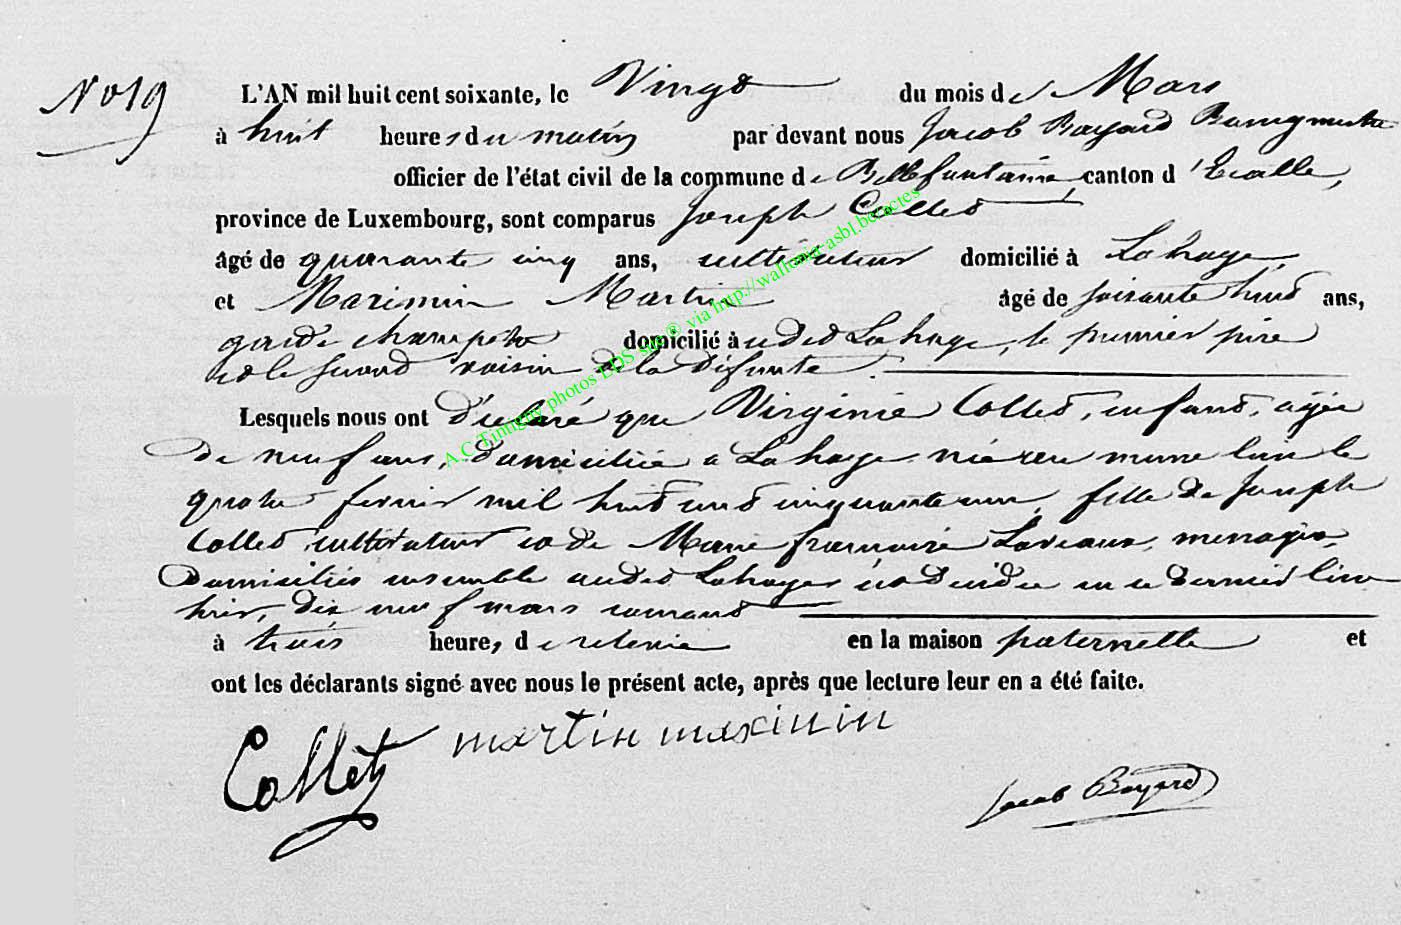 N° 19
L'AN mil huit cent soixante, le Vingt du mois de Mars
à huit heures du matin par devant nous Jacob Bayard Bourgmestre
officier de l'état civil de la commune de Bellefontaine, canton d'Etalle,
province de Luxembourg, sont comparus Joseph Collet
âgé de quarante cinq ans, cultivateur domicilié à Lahage,
et Maximin Martin âgé de soixante huit ans,
garde champetre domicilié à udit Lahage, le premier père
et le second voisin de la défunte.
Lesquels nous ont déclaré que Virginie Collet, enfant, agée
de neuf ans, domiciliée a Lahage née au meme lieu le
quatre fevrier mil huit cent cinquante un, fille de Joseph
Collet, cultivateur et de Marie françoise Laveaux, menagère,
Domiciliés ensemble audit Lahage, est decidée en ce dernier lieu
hier, dix neuf mars courant
à trois heures, de relevée en la maison paternelle et
ont les déclarants signé avec nous le présent acte, après que lecture leur en a été faite.
Collet martin maximin
Jacob Bayard
A.C Tintigny photos EDS sur ® via http://wallonia-asbl.be/actes